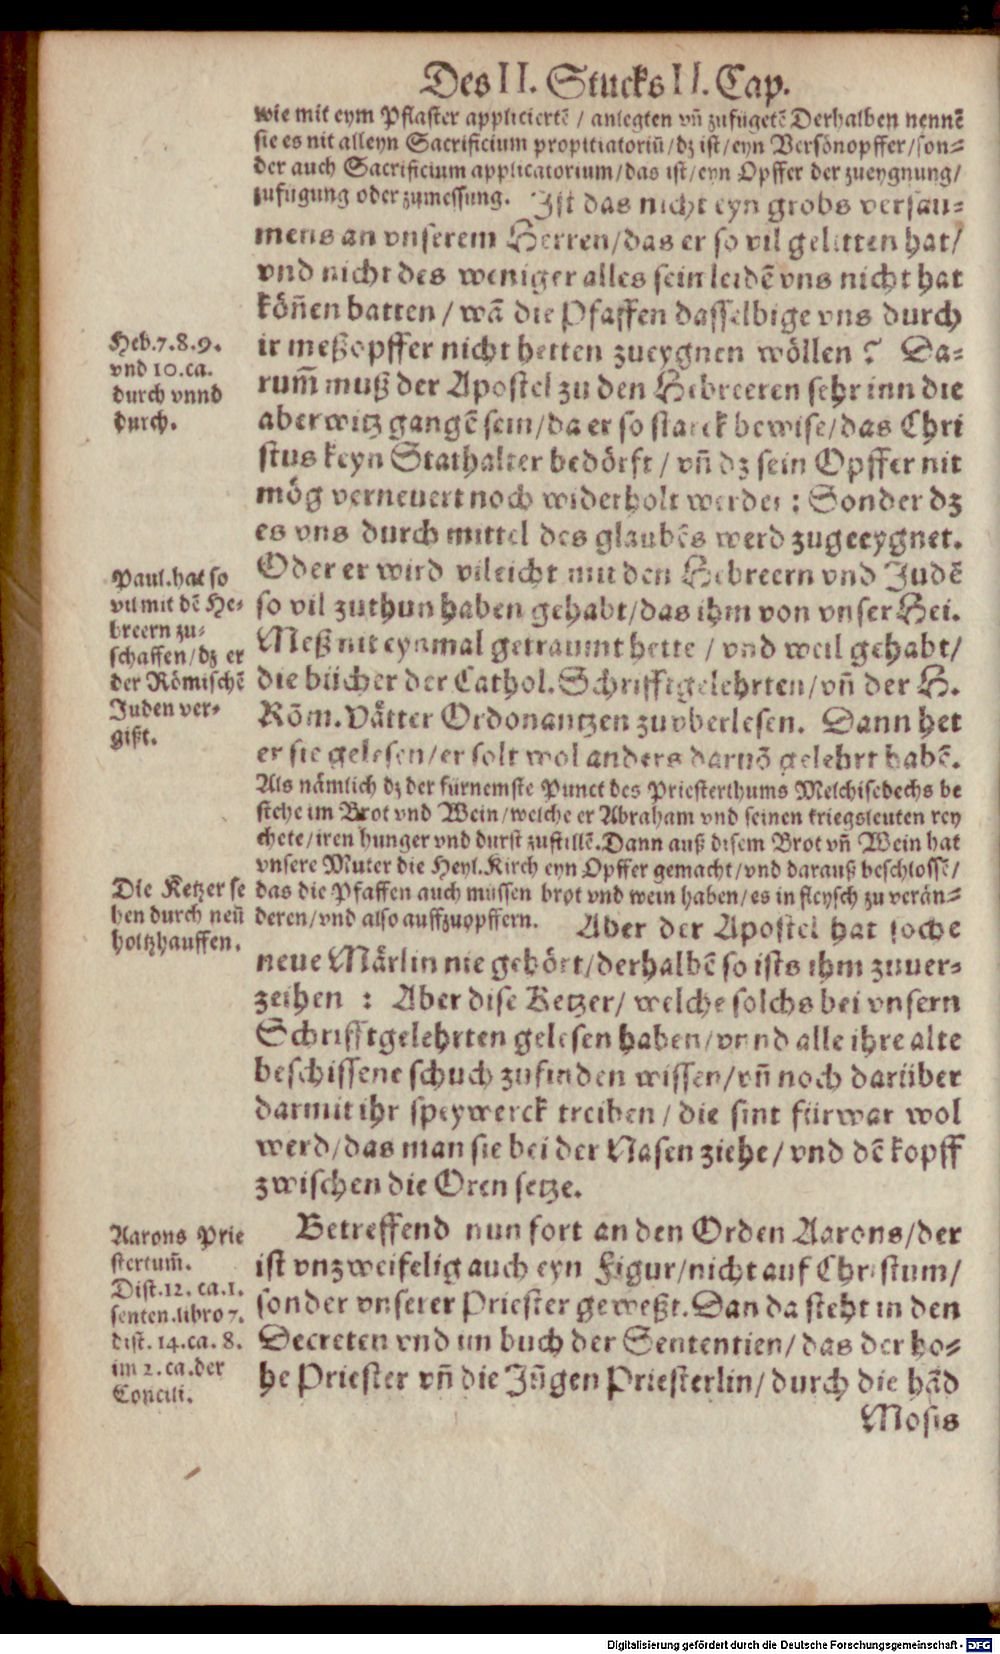 Des II. Stucks II. Cap.
wie mit eym Pflaster applicierte͂ / anlegten vn͂ zufügete͂ Derhalben nenne͂
sie es nit alleyn Sacrificium propitiatoriu͂/dz ist/eyn Versönopffer/son=
der auch Sacrificium applicatorium/das ist/eyn Opffer der zueygnung/
zufügung oder zumessung. Ist das nicht eyn grobs versau=
mens an vnserem Herren/das er so vil gelitten hat/
vnd nicht des weniger alles sein leide͂ vns nicht hat
kön͂en batten / wa͂ die Pfaffen dasselbige vns durch
ir meßopffer nicht hetten zueygnen wöllen? Da=
rum͂ muß der Apostel zu den Hebreeren sehr inn die
aberwitz gange͂ sein/da er so starck bewise/das Chri
stus keyn Stathalter bedörft / vn͂ dz sein Opffer nit
mög verneuert noch widerholt werder : Sonder dz
es vns durch mittel des glaube͂s werd zugeeygnet.
Oder er wird vileicht mit den Hebreern vnd Jude͂
so vil zuthun haben gehabt/das ihm von vnser Hei.
Meß nit eynmal getraumt hette / vnd weil gehabt/
die bücher der Cathol. Schrifftgelehrten/vn͂ der H.
Röm. Vätter Ordonantzen zuvberlesen. Dann het
er sie gelesen/er solt wol anders darvo͂ gelehrt habe͂.
Als nämlich dz der fürnemste Punct des Priesterthums Melchisedechs be
stehe im Brot vnd Wein/welche er Abraham vnd seinen kriegsleuten rey
chete/iren hunger vnd durst zustille͂. Dann auß disem Brot vn͂ Wein hat
vnsere Muter die Heyl. Kirch eyn Opffer gemacht/vnd darauß beschlosse͂/
das die Pfaffen auch müssen brot vnd wein haben/es in fleysch zu verän=
deren/vnd also auffzuopffern. Aber der Apostel hat soche
neue Märlin nie gehört/derhalbe͂ so ists ihm zuuer=
zeihen : Aber dise Ketzer/ welche solchs bei vnsern
Schrifftgelehrten gelesen haben/vnnd alle ihre alte
beschissene schuch zufinden wissen/vn͂ noch darüber
darmit ihr speywerck treiben / die sint fürwar wol
werd/das man sie bei der Nasen ziehe / vnd de͂ kopff
zwischen die Oren setze.
Betreffend nun fort an den Orden Aarons/der
ist vnzweifelig auch eyn Figur/nicht auf Christum/
sonder vnserer Priester geweßt. Dan da steht in den
Decreten vnd im buch der Sententien/das der ho=
he Priester vn͂ die Jn͂gen Priesterlin/ durch die ha͂d
Mosis
Heb. 7. 8. 9.
vnd 10. ca.
durch vnnd
durch.
Paul. hat so
vil mit de͂ He=
breern zu=
schaffen/dz er
der Römische͂
Juden ver=
gißt.
Die Ketzer se
hen durch neu͂
holtzhauffen.
Aarons Prie
stertum͂.
Dist. 12. ca. 1.
senten. libro 7.
dist. 14. ca. 8.
im 2. ca. der
Concili.
Digitalisierung gefördert durch die Deutsche Forschungsgemeinschaft - DFG